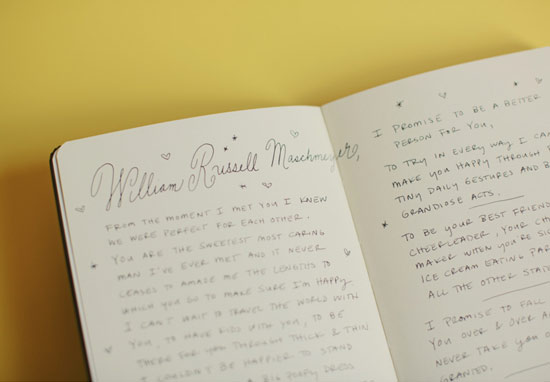 William Russell Maschmeyer,
FROM THE MOMENT I MET YOU I KNEW
WE WERE PERFECT FOR EACH OTHER.
YOU ARE THE SWEETEST MOST CARING
MAN I'VE EVER MET AND IT NEVER
CEASES TO AMAZE ME THE LENGTHS TO
WHICH YOU GO TO MAKE SURE I'M HAPPY.
I CAN'T WAIT TO TRAVEL THE WORLD WITH
YOU, TO HAVE KIDS WITH YOU, TO BE
THERE FOR YOU THROUGH THICK & THIN.
I COULDN'T BE HAPPIER TO STAND
A BIG POOFY DRESS
I PROMISE TO BE A BETTER
PERSON FOR YOU,
TO TRY IN EVERY WAY I CA
MAKE YOU HAPPY THROUGH
TINY DAILY GESTURES AND B
GRANDIOSE ACTS.
TO BE YOUR BEST FRIEND
CHEERLEADER, YOUR
MAKER WHEN YOU'RE SI
ICE CREAM EATING PAR
ALL THE OTHER
I PROMISE TO FALL
YOU OVER & OVER A
NEVER TAKE YOU
GRANTED.